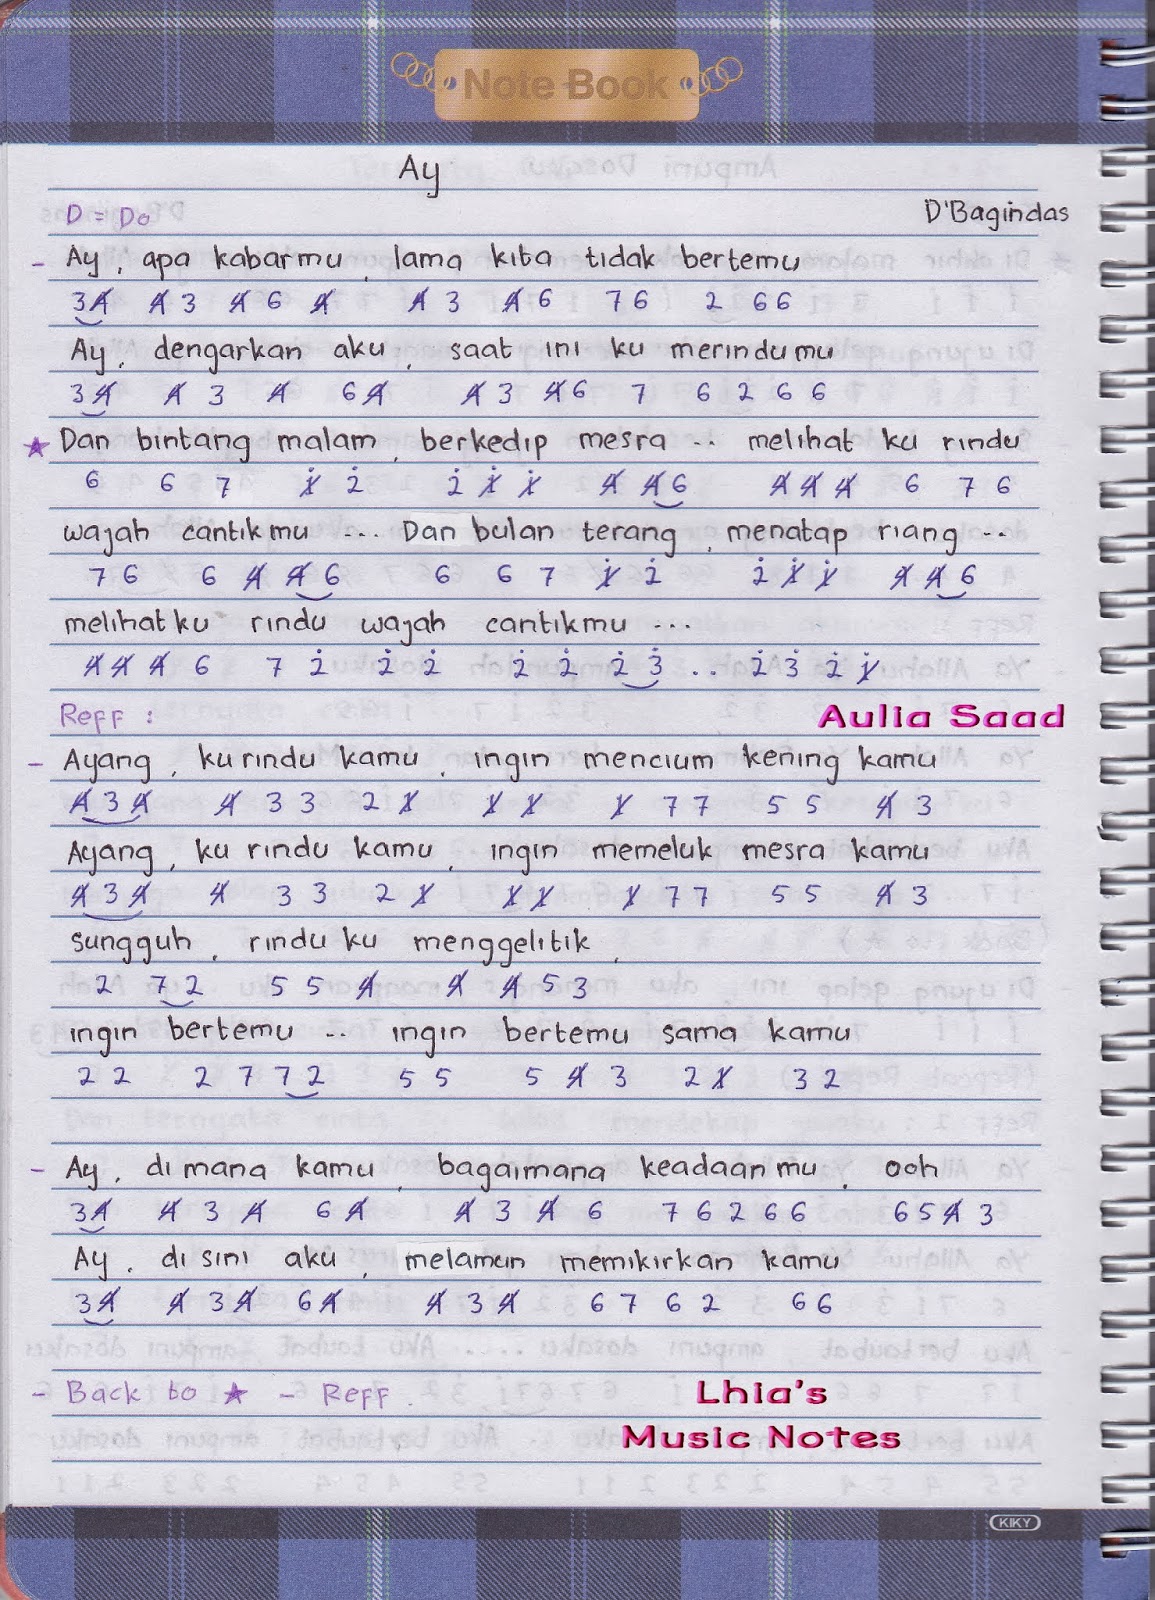 Note Book
Ay
D = Do
D'Bagindas
- Ay, apa kabarmu, lama kita tidak bertemu
34̸ 4̸ 3 4̸ 6 4̸ 4̸ 3 4̸ 6 7 6 2 6 6
Ay, dengarkan aku, saat ini ku merindumu
34̸ 4̸ 3 4̸ 6 4̸ 4̸ 3 4̸ 6 7 6 2 6 6
★ Dan bintang malam, berkedip mesra .. melihat ku rindu
6 6 7 1̸̇ 2̇ 2̇ 1̸̇ 1̸̇ 4̸ 4̸ 6 4̸ 4̸ 4̸ 6 7 6
wajah cantikmu ... Dan bulan terang, menatap riang ..
7 6 6 4̸ 4̸ 6 6 6 7 1̸̇ 2̇ 2̇ 1̸̇ 1̸̇ 4̸ 4̸ 6
melihat ku rindu wajah cantikmu ...
4̸ 4̸ 4̸ 6 7 2̇ 2̇ 2̇ 2̇ 2̇ 2̇ 3̇ .. 2̇ 3̇ 2̇ 1̸̇
Reff :
Aulia Saad
- Ayang, ku rindu kamu, ingin mencium kening kamu
4̸ 3 4̸ 4̸ 3 3 2 1̸ 1̸ 1̸ 1̸ 7 7 5 5 4̸ 3
Ayang, ku rindu kamu, ingin memeluk mesra kamu
4̸ 3 4̸ 4̸ 3 3 2 1̸ 1̸ 1̸ 1̸ 7 7 5 5 4̸ 3
sungguh, rindu ku menggelitik,
2 7 2 5 5 4̸ 4̸ 4̸ 5 3
ingin bertemu .. ingin bertemu sama kamu
2 2 2 7 7 2 5 5 5 4̸ 3 2 1̸ 3 2
- Ay, di mana kamu, bagaimana keadaanmu, ooh
34̸ 4̸ 3 4̸ 6 4̸ 4̸ 3 4̸ 6 7 6 2 6 6 6 5 4̸ 3
Ay, di sini aku, melamun memikirkan kamu
34̸ 4̸ 3 4̸ 6 4̸ 4̸ 3 4̸ 6 7 6 2 6 6
- Back to ★ - Reff
Lhia's
Music Notes
KIKY